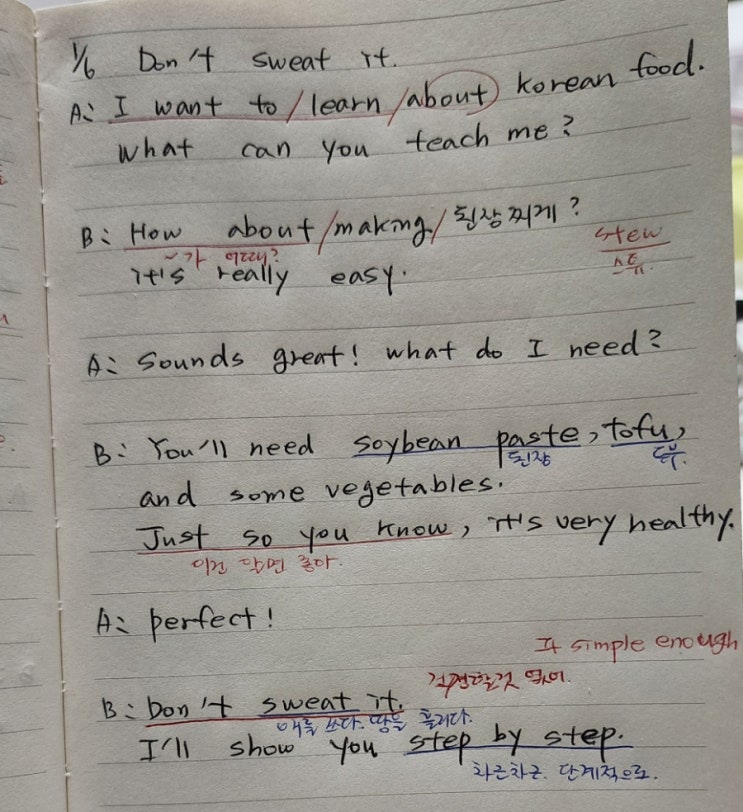 1/6 Don't sweat it.
A: I want to / learn / about Korean food.
What can you teach me?
B: How about / making / 된장찌게?
~가 어때?
stew
스튜.
it's really easy.
A: Sounds great! what do I need?
B: You'll need soybean paste, tofu,
된장
두부.
and some vegetables.
Just so you know, it's very healthy.
이건 알면 좋아.
A: perfect!
It simple enough
걱정할것 없어.
B: Don't sweat it.
애를 쓰다. 땀을 흘리다.
I'll show you step by step.
차근차근. 단계적으로.